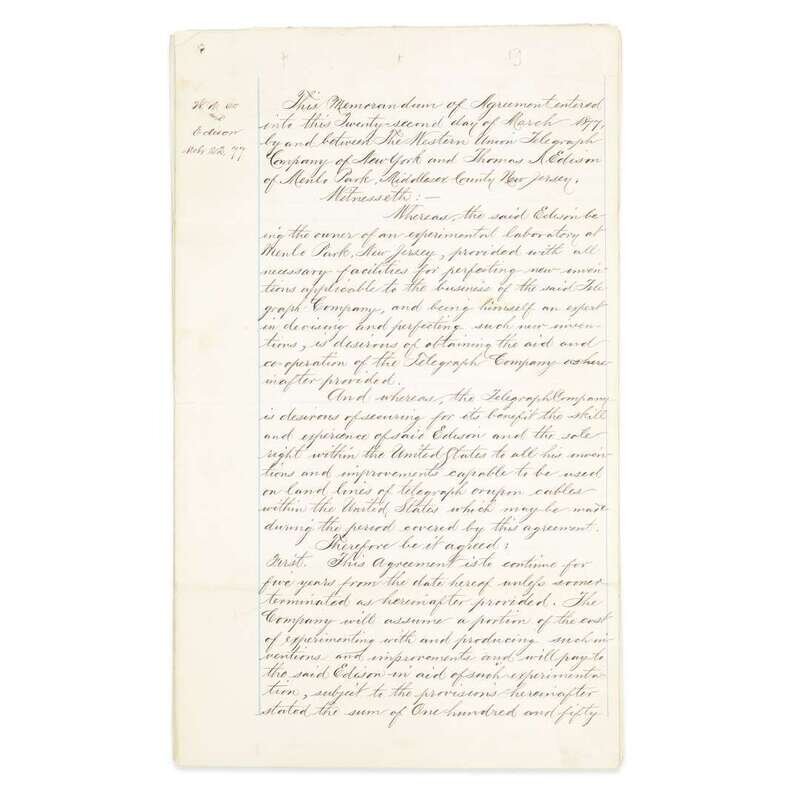 W. U. Co
and
Edison
Mch 22, 77
This Memorandum of Agreement entered
into this Twenty-second day of March 1877,
by and between The Western Union Telegraph
Company of New York and Thomas A Edison
of Menlo Park, Middlesex County New Jersey,
Witnesseth: —
Whereas, the said Edison be
ing the owner of an experimental laboratory at
Menlo Park, New Jersey, provided with all
necessary facilities for perfecting new inven
tions applicable to the business of the said Tele
graph Company, and being himself an expert
in devising and perfecting such new inven
tions, is desirous of obtaining the aid and
co-operation of the Telegraph Company as here
inafter provided.
And whereas, the Telegraph Company
is desirous of securing for its benefit the skill
and experience of said Edison and the sole
right within the United States to all his inven
tions and improvements capable to be used
on land lines of telegraph or upon cables
within the United States which may be made
during the period covered by this agreement.
Therefore be it agreed:
First. This Agreement is to continue for
five years from the date hereof unless sooner
terminated as hereinafter provided. The
Company will assume a portion of the cost
of experimenting with and producing such in
ventions and improvements and will pay to
the said Edison in aid of such experimenta
tion, subject to the provisions hereinafter
stated the sum of One hundred and fifty